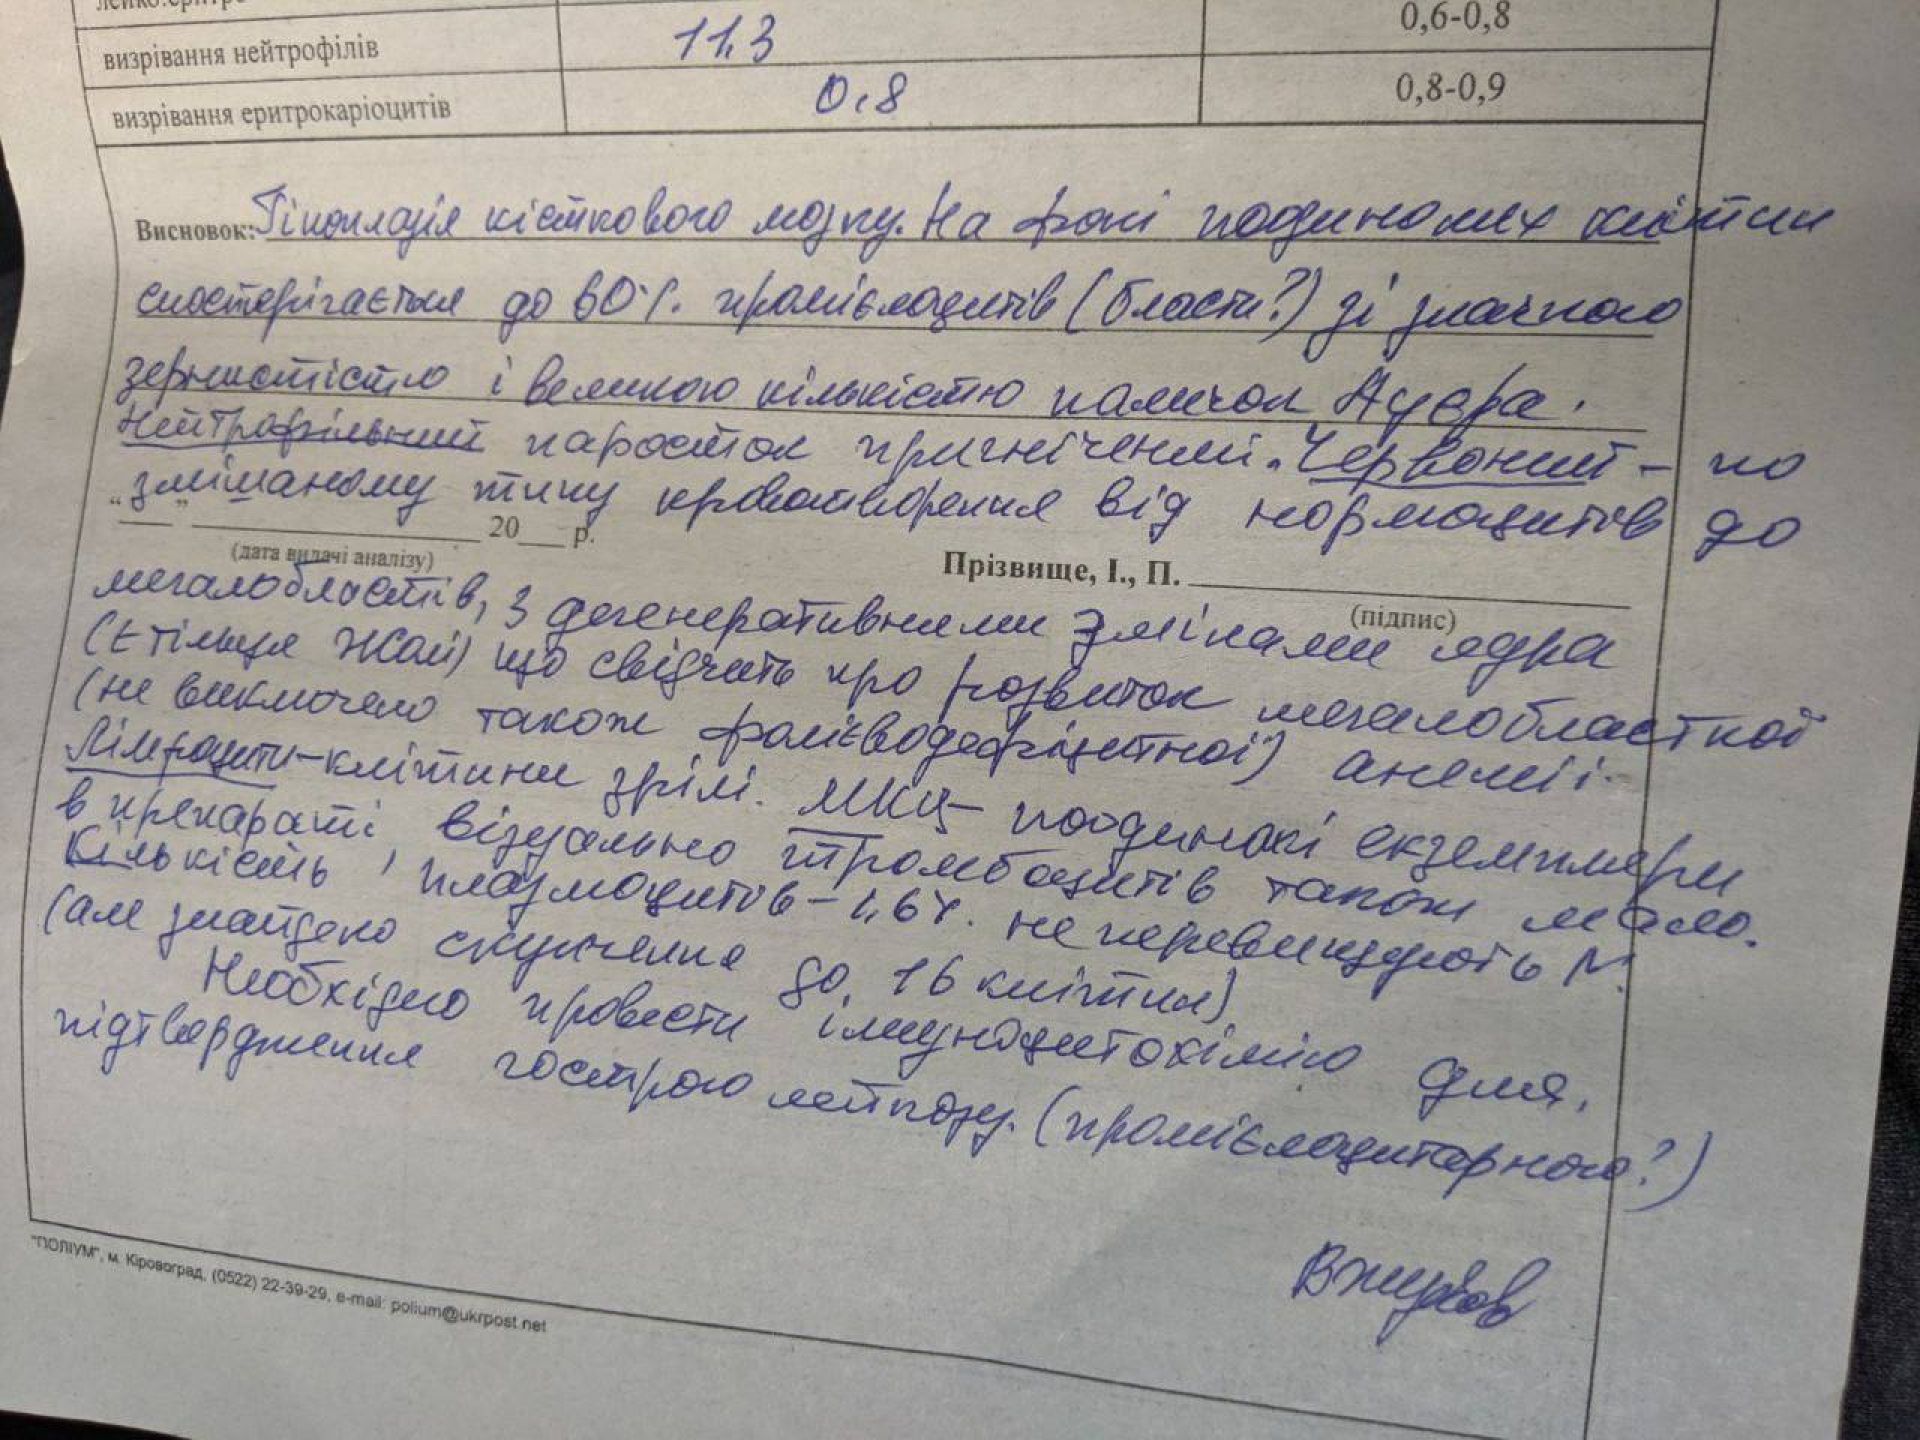 лейко:еритро
0,6-0,8
визрівання нейтрофілів 11.3
визрівання еритрокаріоцитів 0.8 0,8-0,9
Висновок: Гіпоплазія кісткового мозку. На фоні поодиноких клітин
спостерігається до 60%. промієлоцитів (бласти?) зі значною
зернистістю і великою кількістю паличок Ауєра.
Нейтрофільний паросток пригнічений. Червоний - по
змішаному типу кровотворення від нормоцитів до
“___” ____________ 20___ р.
(дата видачі аналізу)
Прізвище, І., П. ____________
(підпис)
мегалобластів, з дегенеративними змінами ядра
(є тільця Жолі) що свідчить про розвиток мегалобластної
(не виключено також фолієводефіцитної) анемії.
Лімфоцити - клітини зрілі. МКЦ - поодинокі екземпляри
в препараті, візуально тромбоцитів також мало.
Кількість плазмоцитів - 1,6%. не перевищують N.
(але знайдено скупчення до 16 клітин)
Необхідно провести імуноцитохімію для
підтвердження гострого лейкозу. (промієлоцитарного?)
"ПОЛІУМ", м. Кіровоград, (0522) 22-39-29, e-mail: polium@ukrpost.net